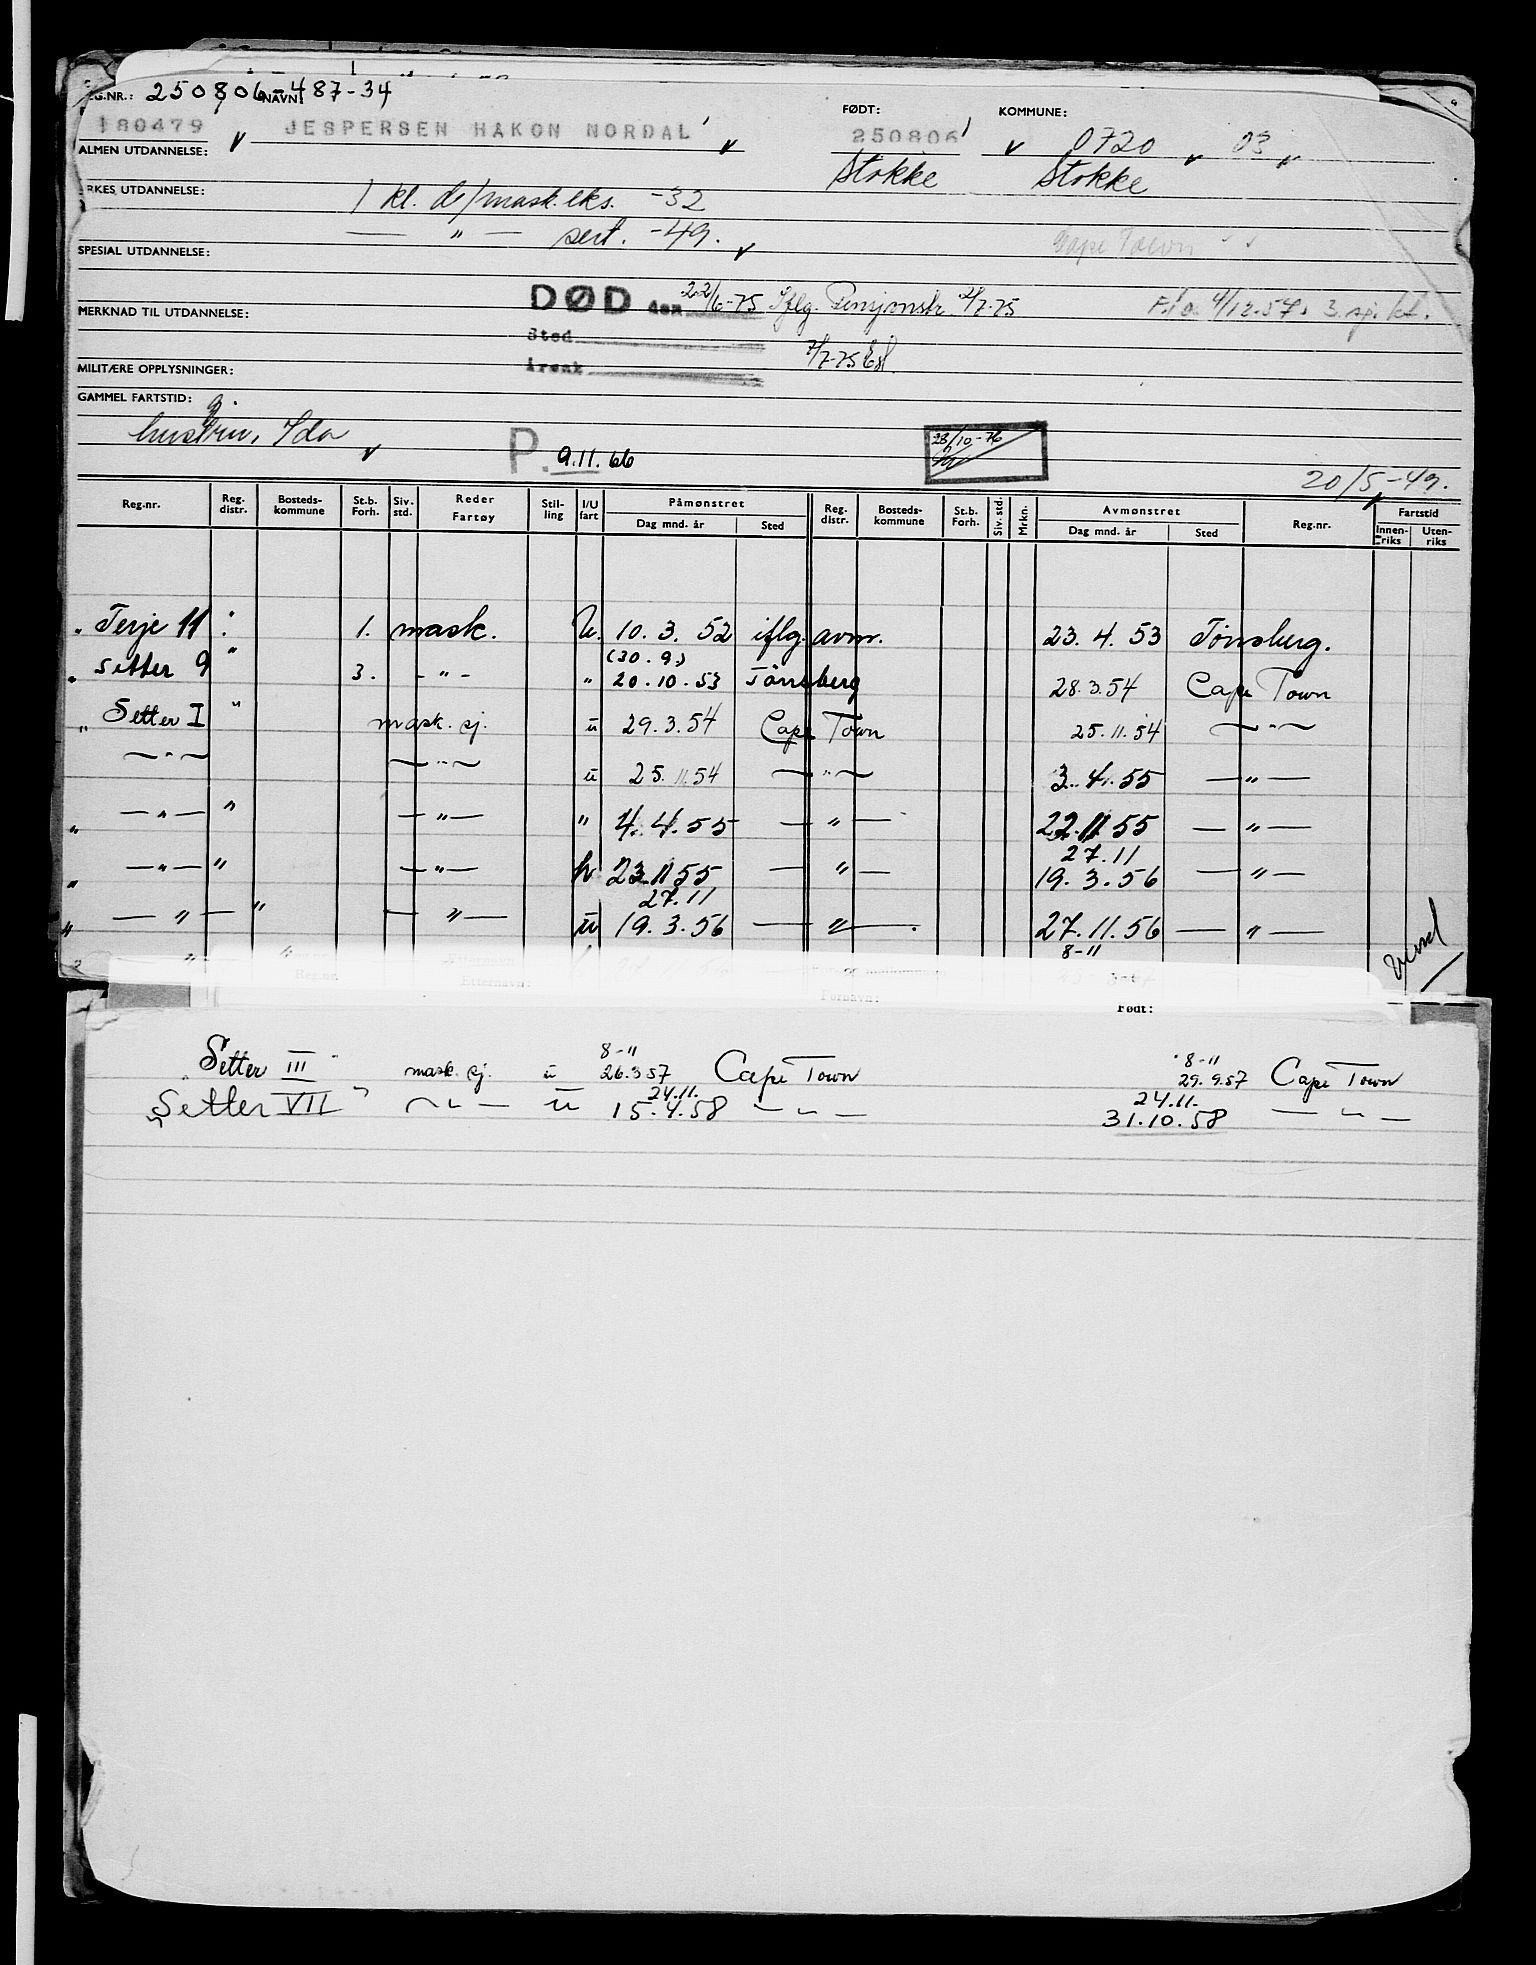 REG.NR.: 250806-48734 NAVN:
FØDT: KOMMUNE:
180479 JESPERSEN HAKON NORDAL 250806 0720 03
ALMEN UTDANNELSE: Stokke Stokke
YRKES UTDANNELSE: 1 kl. d/mask.eks. -32
— " — sert. -49.
SPESIAL UTDANNELSE: Cape Town
DØD den 22/6-75 Iflg. Pensjonstr 2/7-75 4/12.57. 3. sj.
MERKNAD TIL UTDANNELSE:
Sted
Årsak 7/7-75
MILITÆRE OPPLYSNINGER:
GAMMEL FARTSTID: g.
hustru, Ida
P. 9.11.66 28/10-76
20/5-49.
Reg.nr. Reg. distr. Bosteds-kommune St.b. Forh. Siv. std. Reder Fartøy Stil-ling I/U fart Påmønstret Dag mnd. år Sted Reg. distr. Bosteds-kommune St.b. Forh. Siv. std. Mrkn. Avmønstret Dag mnd. år Sted Reg.nr. Fartstid Innen-riks Uten-riks
" Terje 11 " 1. mask. U. 10. 3. 52 iflg. avm. 23. 4. 53 Tönsberg.
(30. 9.)
" Setter 9 " 3. - " - " 20.10.53 Tönsberg 28.3.54 Cape Town
" Setter I " mask. sj. u 29.3.54 Cape Town 25.11.54 — " —
— " — — " — u 25.11.54 — " — 3.4.55 — " —
" — " — " — " — " 4.4.55 — " — 22.11 55 — " —
27.11
" — " — " — " — h 23.11 55 — " — 19.3.56 — " —
27.11
" — " — " — " — u 19.3.56 — " — 27.11.56 — " —
8-11
vend
Reg.nr. Etternavn: Fornavn:
Født:
8-11 8-11
"Setter III" mask. sj. u 26.3 57 Cape Town 29.9.57 Cape Town
24.11. 24.11.
"Setter VII" — " — u 15.4.58 — " — 31.10.58 — " —